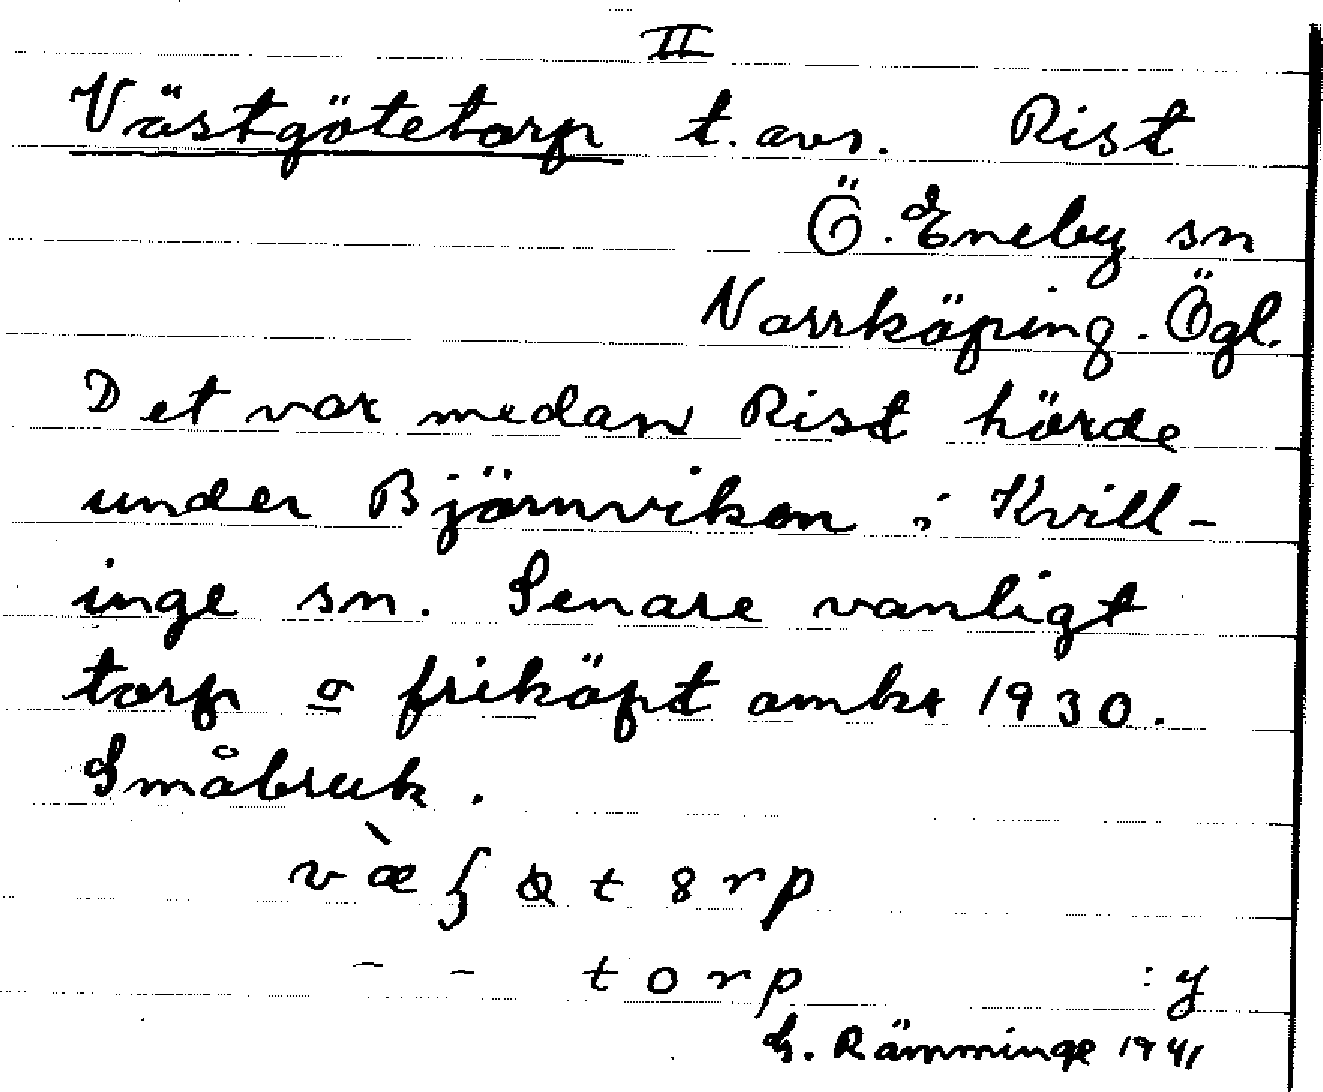 II
Västgötetorp t.avs. Rist
Ö. Eneby sn
Norrköping. Ögl.
Det var medan Rist hörde
under Björnviken i Kvill-
inge sn. Senare vanligt
torp o friköpt omkr 1930.
Småbruk.
t 8 r p
- - t o r p :y
G. Rämminge 1941